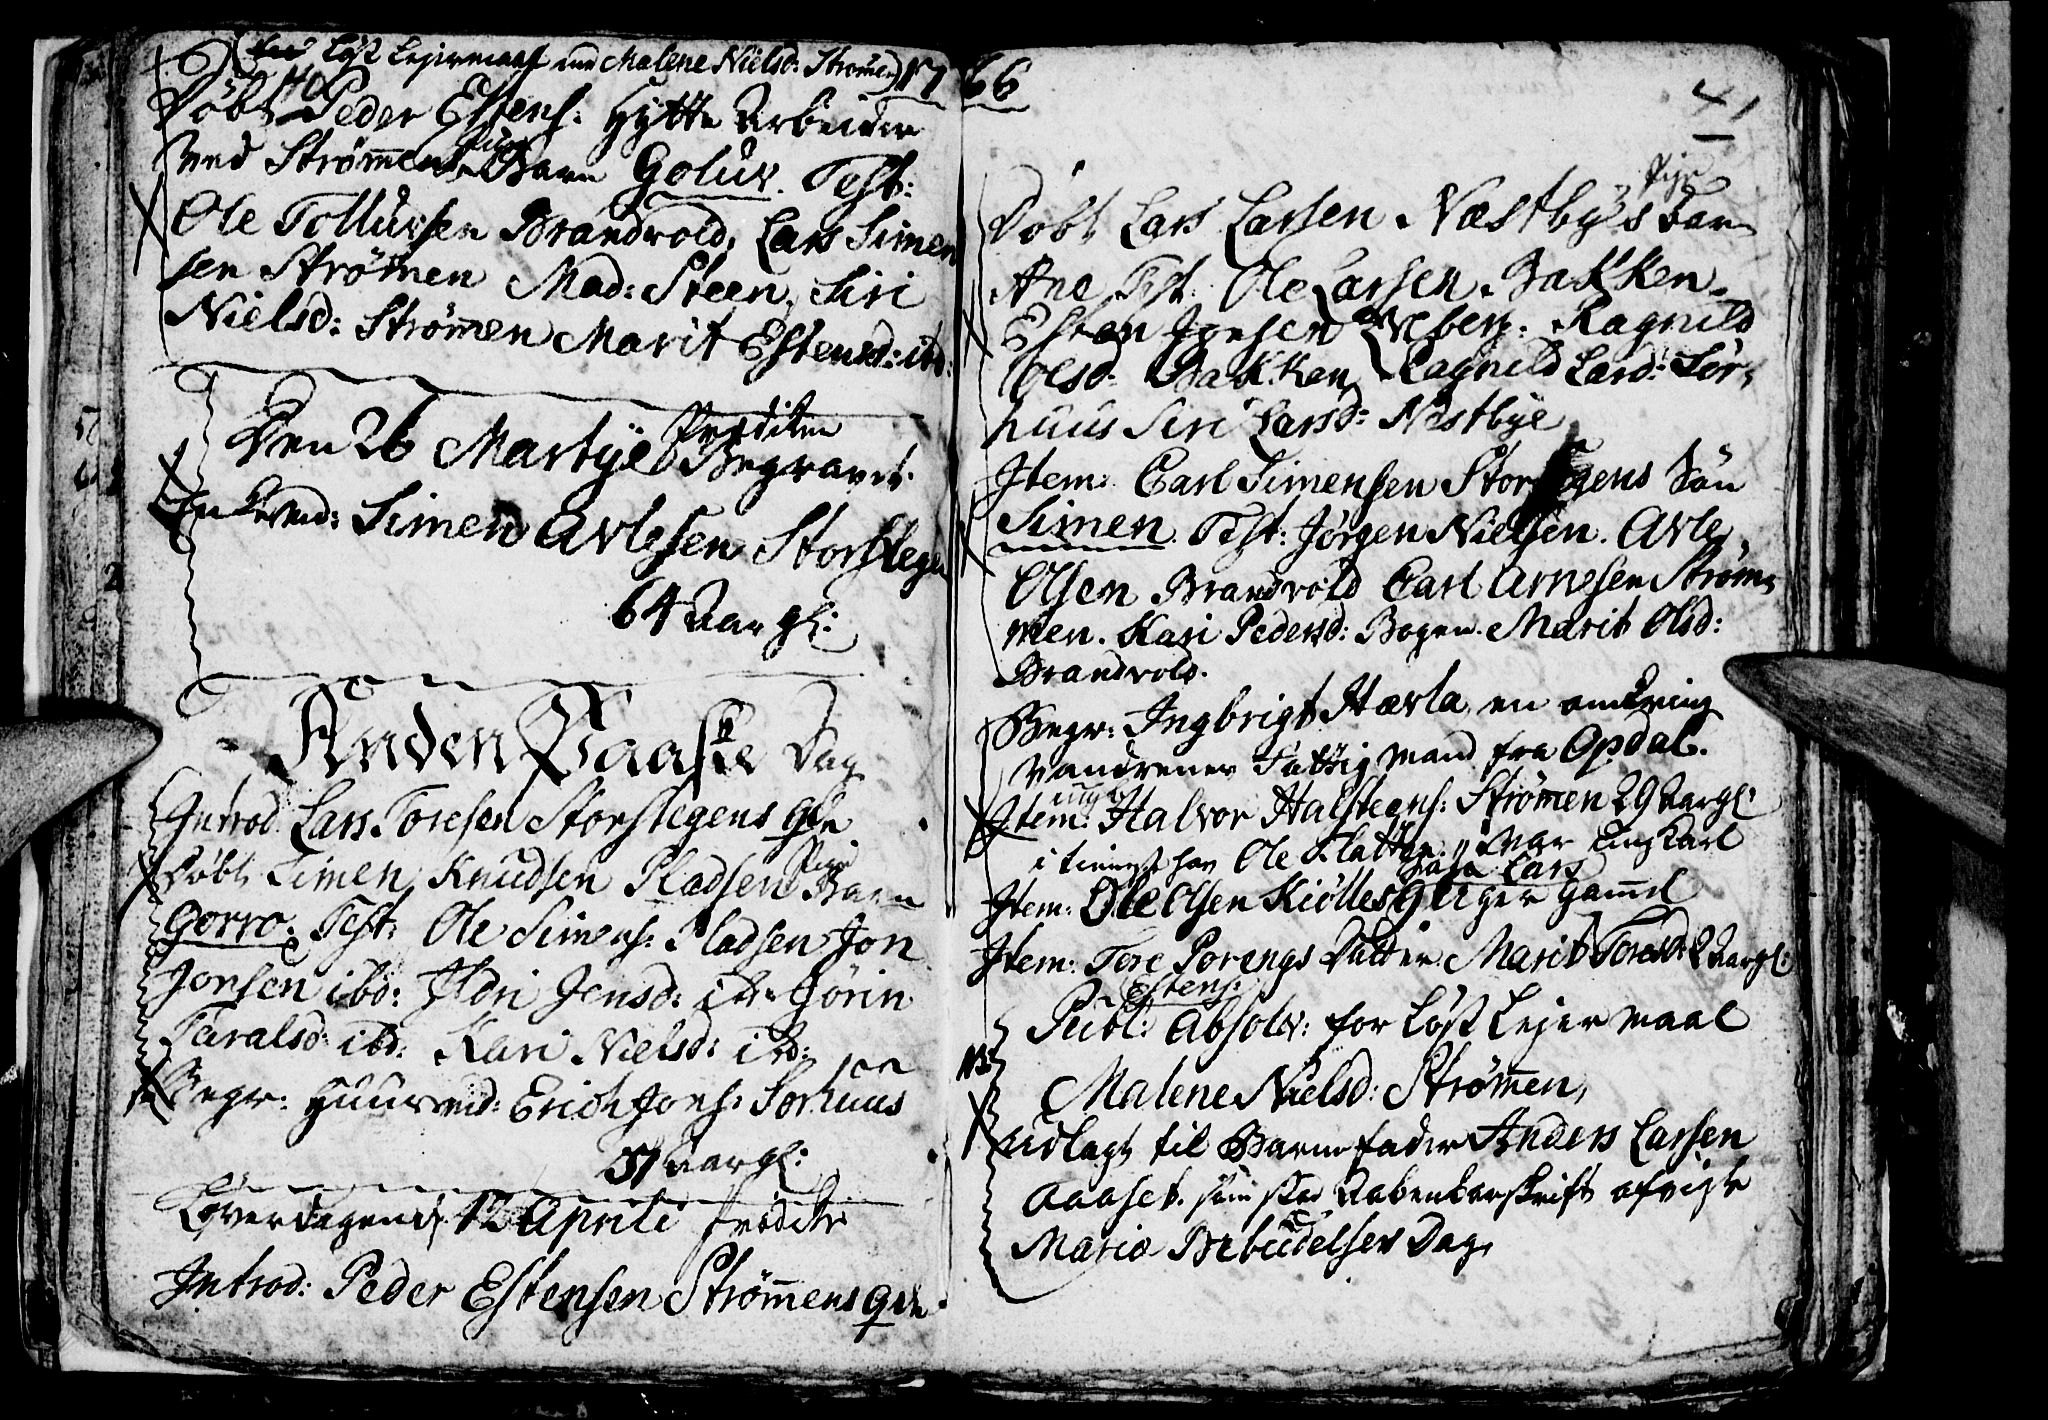 Løst Lejermaal med Malene Nielsd: Strömen) 17
Döbt Peder Estens: Hytte Arbeider
ved Strömens Barn Goluv. Test:
Ole Tollufsen Brandvold, Lars Simen
sen Strömen Mad: Steen, Siri
Nielsd: Strömen Marit Estensd: ibd:
Prædiken
Den 26 Martÿe Begravet.
Simen Arlesen Storstegen
64 Aar gl:
Anden Paaske Dag
Introd. Lars Toresen Storstegens qve
Pige
Döbt Simen Knudsen Pladsen Barn
Gorro. Test: Ole Simens: Pladsen Jon
Jonsen ibd: Ildri Jensd: ibd: Jörin
Taralsd: ibd: Kari Nielsd: ibd:
Begr: Erich Jons: Sorhuus
51 Aar gl:
Löverdagend: 12 Aprili
Introd: Peder Estensen Strömens qve
66
41
Pige
Döbt Lars Larsen Næstbÿs Barn
Ane Test: Ole Larsen Bakken
Esten Jensen Ragnild
Olsd: Bakken Ragnild Larsd: Sör
huus Siri Larsd: Nestbÿe
Item: Carl Simensen Storstegens Sön
Simen Test: Jörgen Nielsen. Arle
Olsen Brandvold Carl Arnesen Ström
men. Kari Pedersd: Bogen. Marit Olsd:
Brandvold.
Begr: Ingbrigt Hævla en omkring
vandrende Fattig Mand fra Opdal.
ungk
Item: Halvor Halstegns: Strömen 29 Aar gl:
i tieneste hos Ole Flatten. var ung Karl
Lars
Item: Ole Olsen Kiölles 9 Uger gamel
Item: Tore Porengs Datter Marit Toresd: 2 Aar gl:
Estens:
Publ: Absolv: for Løst Lejermaal
NB:
Malene Nielsd: Strömen,
udlagt til Barnefader Anders Larsen
Aaaset. som stod Aabenbarskrift afvigte
Mariæ Bebudelses Dag.